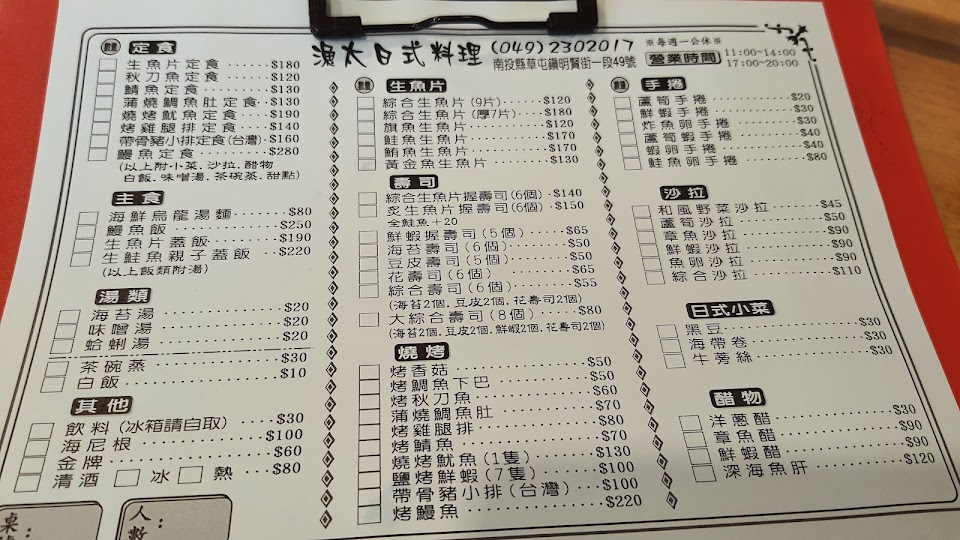 漁太日式料理 (049)2302017
南投縣草屯鎮明賢街一段49號
※每週一公休※
營業時間 11:00~14:00
17:00~20:00
數量 定食
生魚片定食······$180
秋刀魚定食······$120
鯖魚定食······$130
蒲燒鯛魚肚定食··$130
燒烤魷魚定食····$190
烤雞腿排定食····$140
帶骨豬小排定食(台灣)·$160
鰻魚定食······$280
(以上附小菜、沙拉、醋物
白飯、味噌湯、茶碗蒸、甜點)
主食
海鮮烏龍湯麵······$80
鰻魚飯······$250
生魚片蓋飯······$190
生鮭魚親子蓋飯···$220
(以上飯類附湯)
湯類
海苔湯······$20
味噌湯······$20
蛤蜊湯······$20
茶碗蒸······$30
白飯······$10
其他
飲料(冰箱請自取)····$30
海尼根······$100
金牌······$60
清酒 冰 熱 ···$80
桌
人數:
數量 生魚片
綜合生魚片(9片)·····$120
綜合生魚片(厚7片)···$180
旗魚生魚片······$120
鮭魚生魚片······$170
鮪魚生魚片······$170
黃金魚生魚片······$130
壽司
綜合生魚片握壽司(6個)·$140
炙生魚片握壽司(6個)·$150
全鮭魚+20
鮮蝦握壽司(5個)····$65
海苔壽司(6個)······$50
豆皮壽司(5個)······$50
花壽司(6個)······$65
綜合壽司(6個)······$55
(海苔2個、豆皮2個、花壽司2個)
大綜合壽司(8個)····$80
(海苔2個、豆皮2個、鮮蝦2個、花壽司2個)
燒烤
烤香菇······$50
烤鯛魚下巴······$50
烤秋刀魚······$60
蒲燒鯛魚肚······$70
烤雞腿排······$80
烤鯖魚······$70
燒烤魷魚(1隻)·····$130
鹽烤鮮蝦(7隻)·····$100
帶骨豬小排(台灣)···$100
烤鰻魚······$220
數量 手捲
蘆筍手捲······$20
鮮蝦手捲······$30
炸魚卵手捲······$30
蘆筍蝦手捲······$40
蝦卵手捲······$40
鮭魚卵手捲······$80
沙拉
和風野菜沙拉·····$45
蘆筍沙拉······$50
章魚沙拉······$90
鮮蝦沙拉······$90
魚卵沙拉······$90
綜合沙拉······$110
日式小菜
黑豆······$30
海帶卷······$30
牛蒡絲······$30
醋物
洋蔥醋······$30
章魚醋······$90
鮮蝦醋······$90
深海魚肝······$120